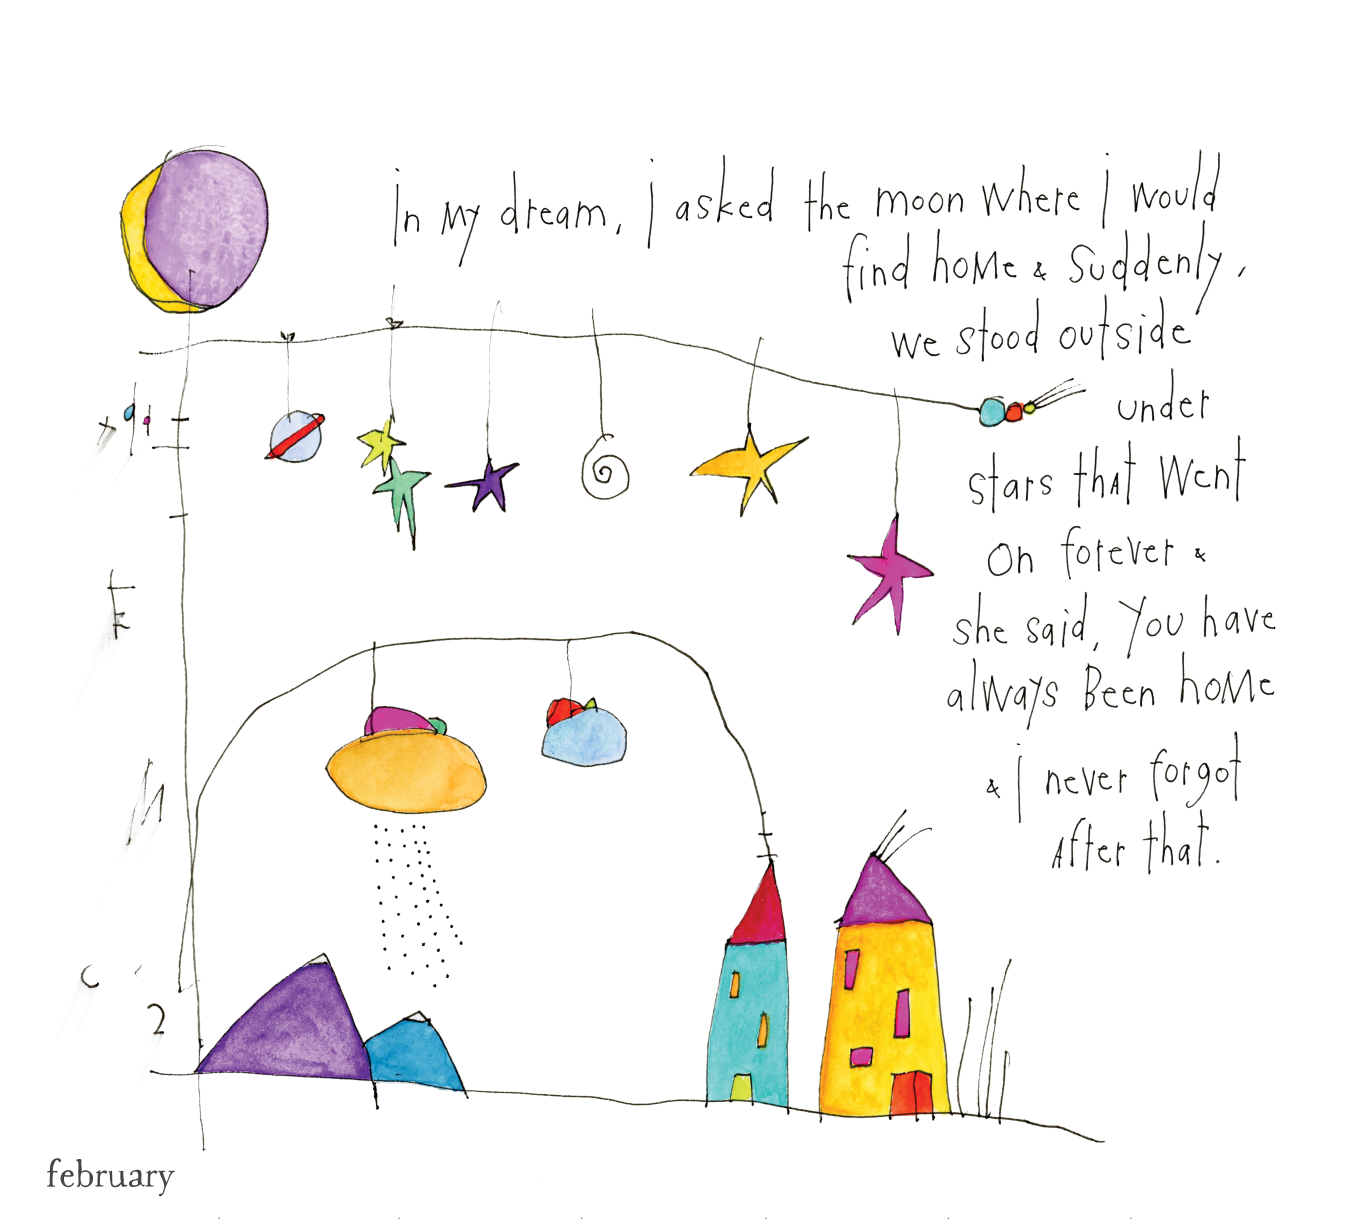 in my dream, i asked the moon where i would
find home & suddenly,
we stood outside
under
stars that went
on forever &
she said, You have
always Been home
& i never forgot
After that.
2
february